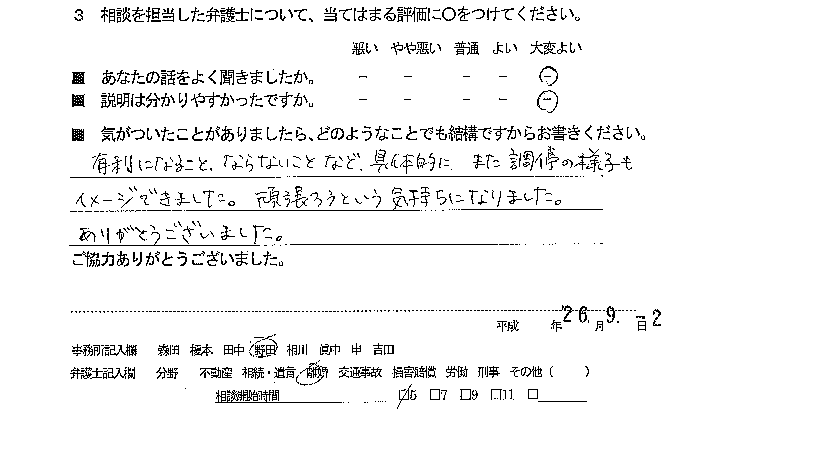 3 相談を担当した弁護士について、当てはまる評価に〇をつけてください。
悪い やや悪い 普通 よい 大変よい
■ あなたの話をよく聞きましたか。 － － － － －
■ 説明は分かりやすかったですか。 － － － － －
■ 気がついたことがありましたら、どのようなことでも結構ですからお書きください。
有利になること、ならないことなど、具体的に、また調停の様子も
イメージできました。頑張ろうという気持ちになりました。
ありがとうございました。
ご協力ありがとうございました。
平成 年 26. 月 9. 日 -2
事務所記入欄 森田 榎本 田中 野田 相川 眞中 申 吉田
弁護士記入欄 分野 不動産 相続・遺言 離婚 交通事故 損害賠償 労働 刑事 その他( )
相談開始時間 □5 □7 □9 □11 □